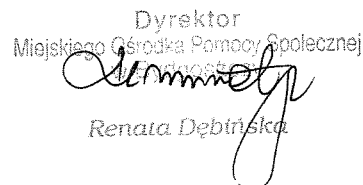 Dyrektor
Miejskiego Ośrodka Pomocy Społecznej
w Bydgoszczy
Renata Dębińska